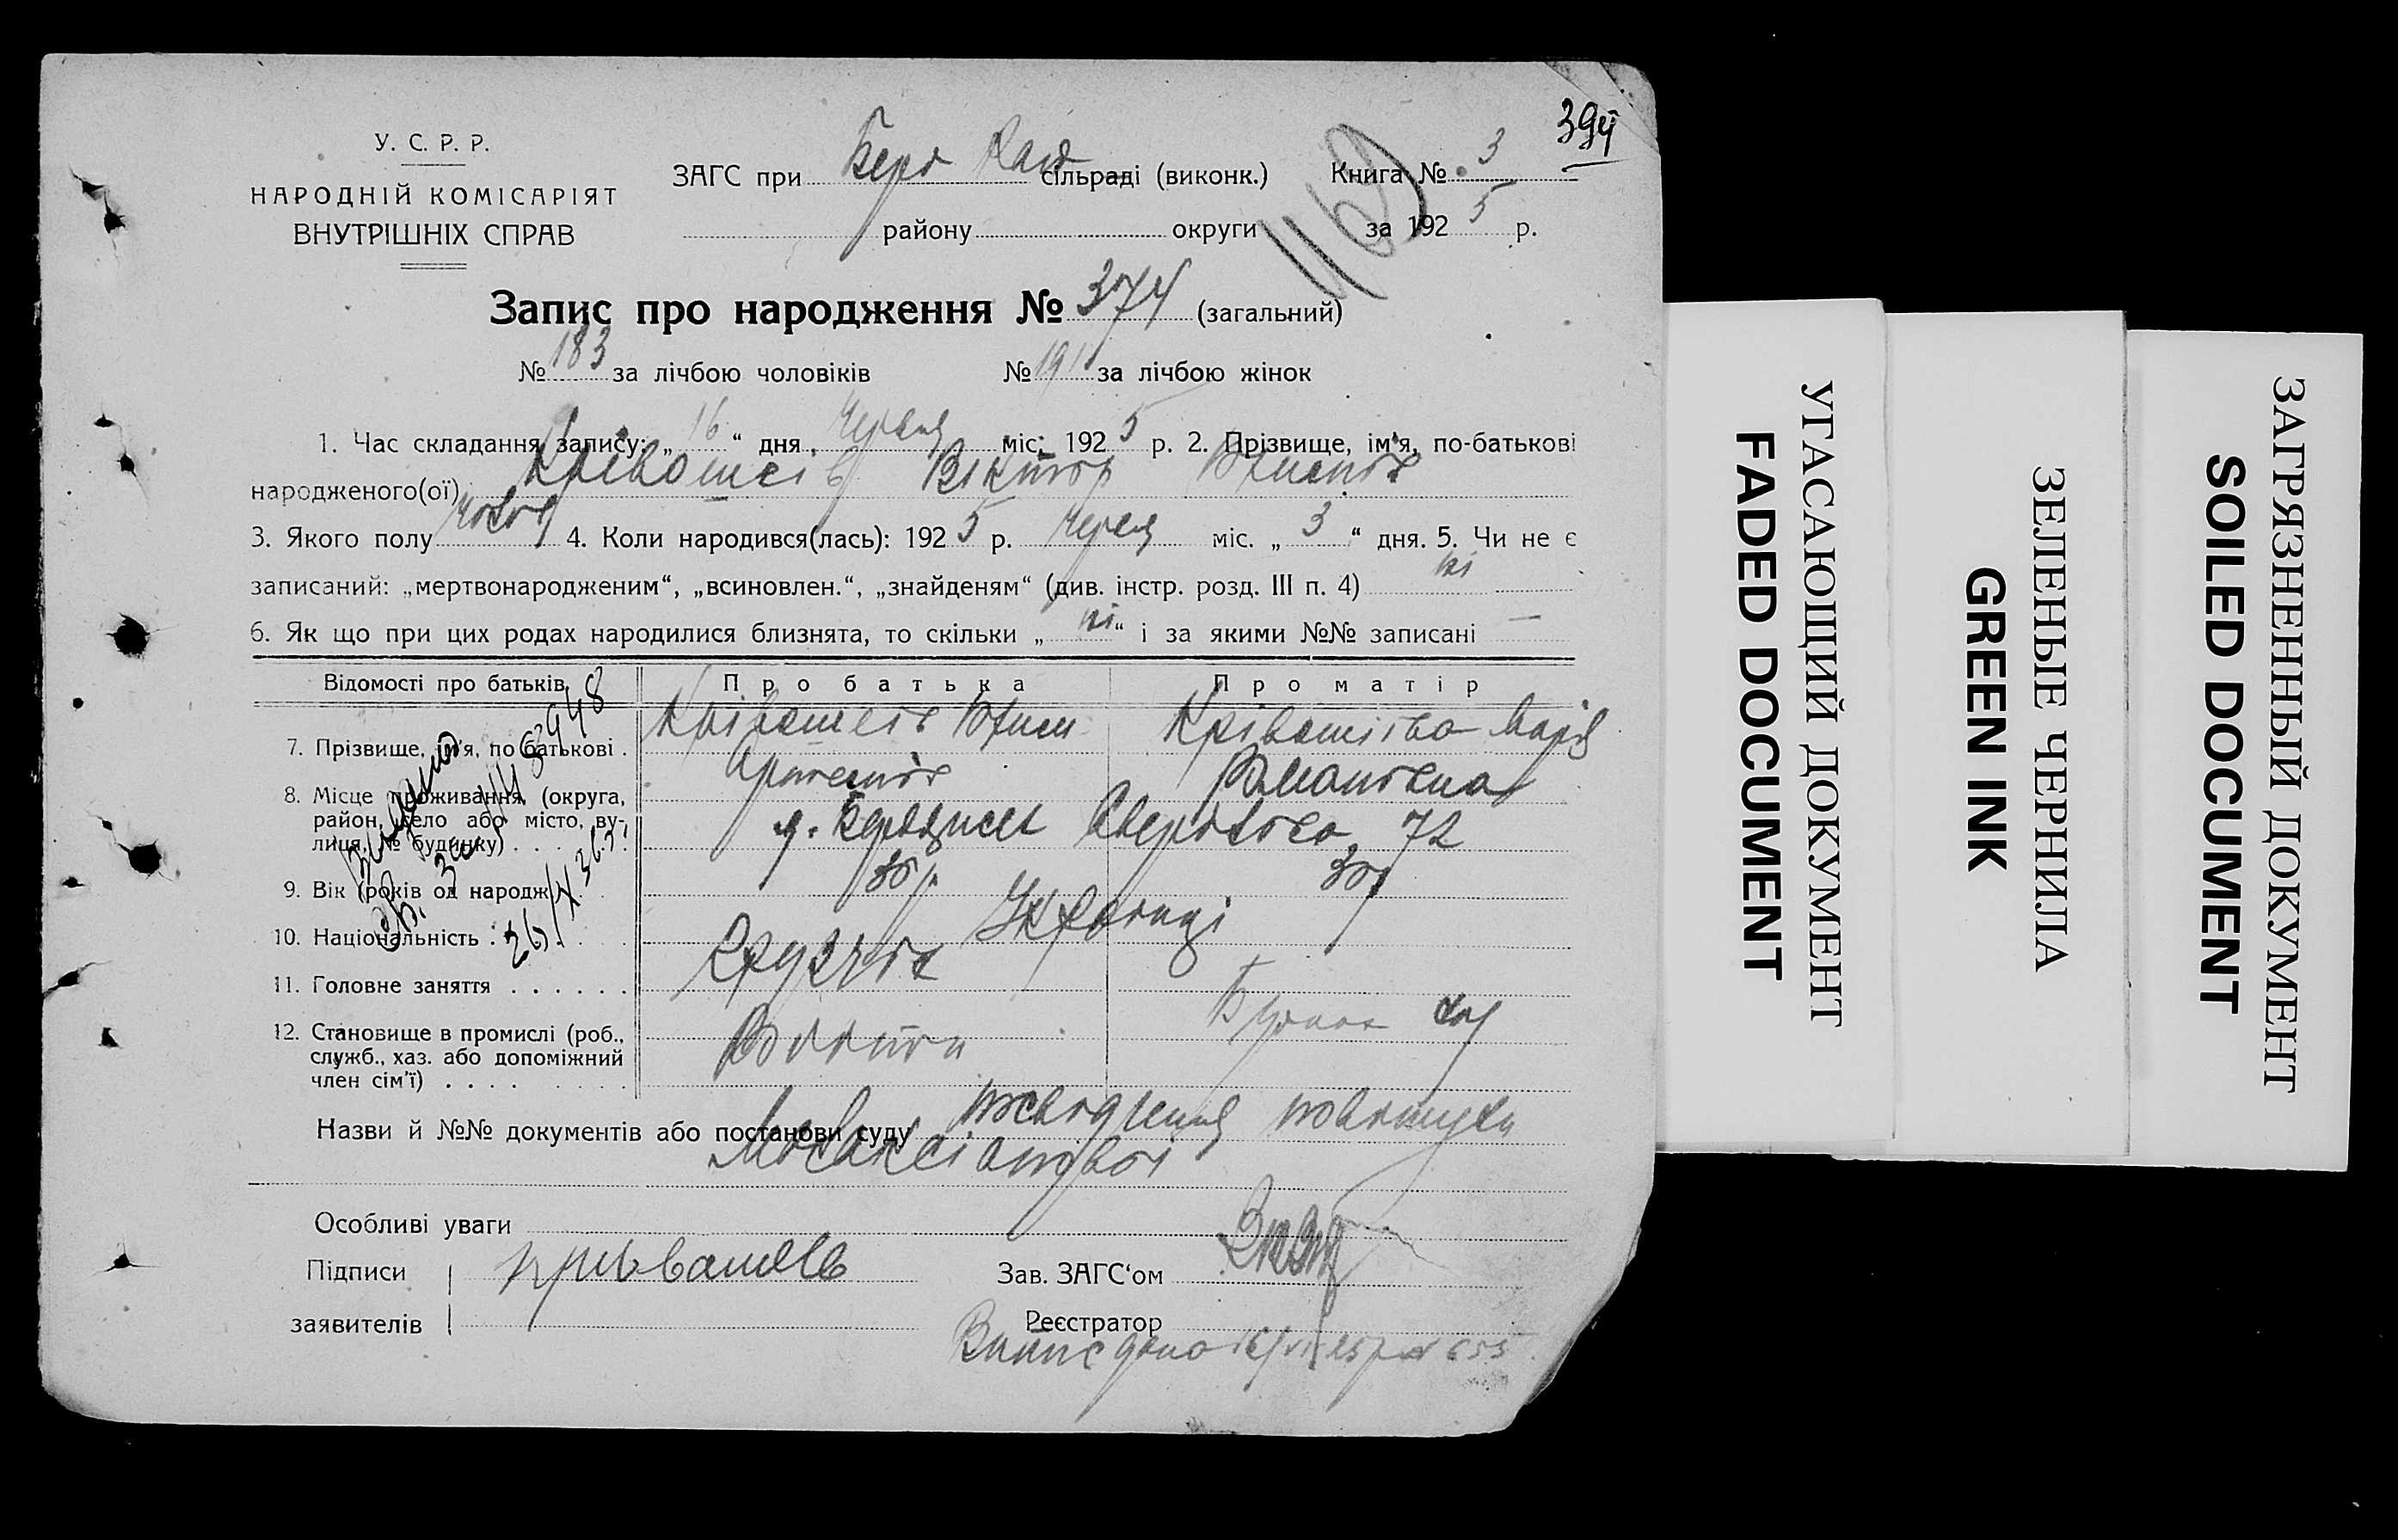 394
У. С. Р. Р.
НАРОДНІЙ КОМІСАРІЯТ
ВНУТРІШНІХ СПРАВ
ЗАГС при Берд сільраді (виконк.)
Книга № 3
району округи
за 1925 р.
1169
Запис про народження № 374 (загальний)
№ 183 за лічбою чоловіків № 191 за лічбою жінок
1. Час складання запису: „16“ дня, Червня міс. 1925 р. 2. Прізвище, ім'я, по-батькові
народженого(ої) Крівошеїв Віктор
3. Якого полу чолов 4. Коли народився(лась): 1925 р. Червня міс. „3“ дня. 5. Чи не є
записаний: „мертвонародженим“, „всиновлен.“, „знайденям“ (див. інстр. розд. III п. 4) ні
6. Як що при цих родах народилися близнята, то скільки „ні“ і за якими №№ записані —
Відомості про батьків Про батька Про матір
7. Прізвище, ім'я, по батькові . Крівошеїв Крівошіева Марія
Романовна
8. Місце проживання, (округа,
район, село або місто, ву-
лиця, № будинку) . . . м. Бердянськ 72
9. Вік (років од народж.) . 30 р. 30 р
10. Національність . . . . Українці
11. Головне заняття . . . . . . Грузчік
12. Становище в промислі (роб.,
служб., хаз. або допоміжний
член сім'ї) . . . .
Видано
св. за № 83948
26/X 36 г.
Назви й №№ документів або постанови суду посвідчення повитухи
Особливі уваги
Підписи
заявителів
Зав. ЗАГС‘ом
Реєстратор
Випис дано 16/VI 25 р № 655
УГАСАЮЩИЙ ДОКУМЕНТ
FADED DOCUMENT
ЗЕЛЕНЫЕ ЧЕРНИЛА
GREEN INK
ЗАГРЯЗНЕННЫЙ ДОКУМЕНТ
SOILED DOCUMENT